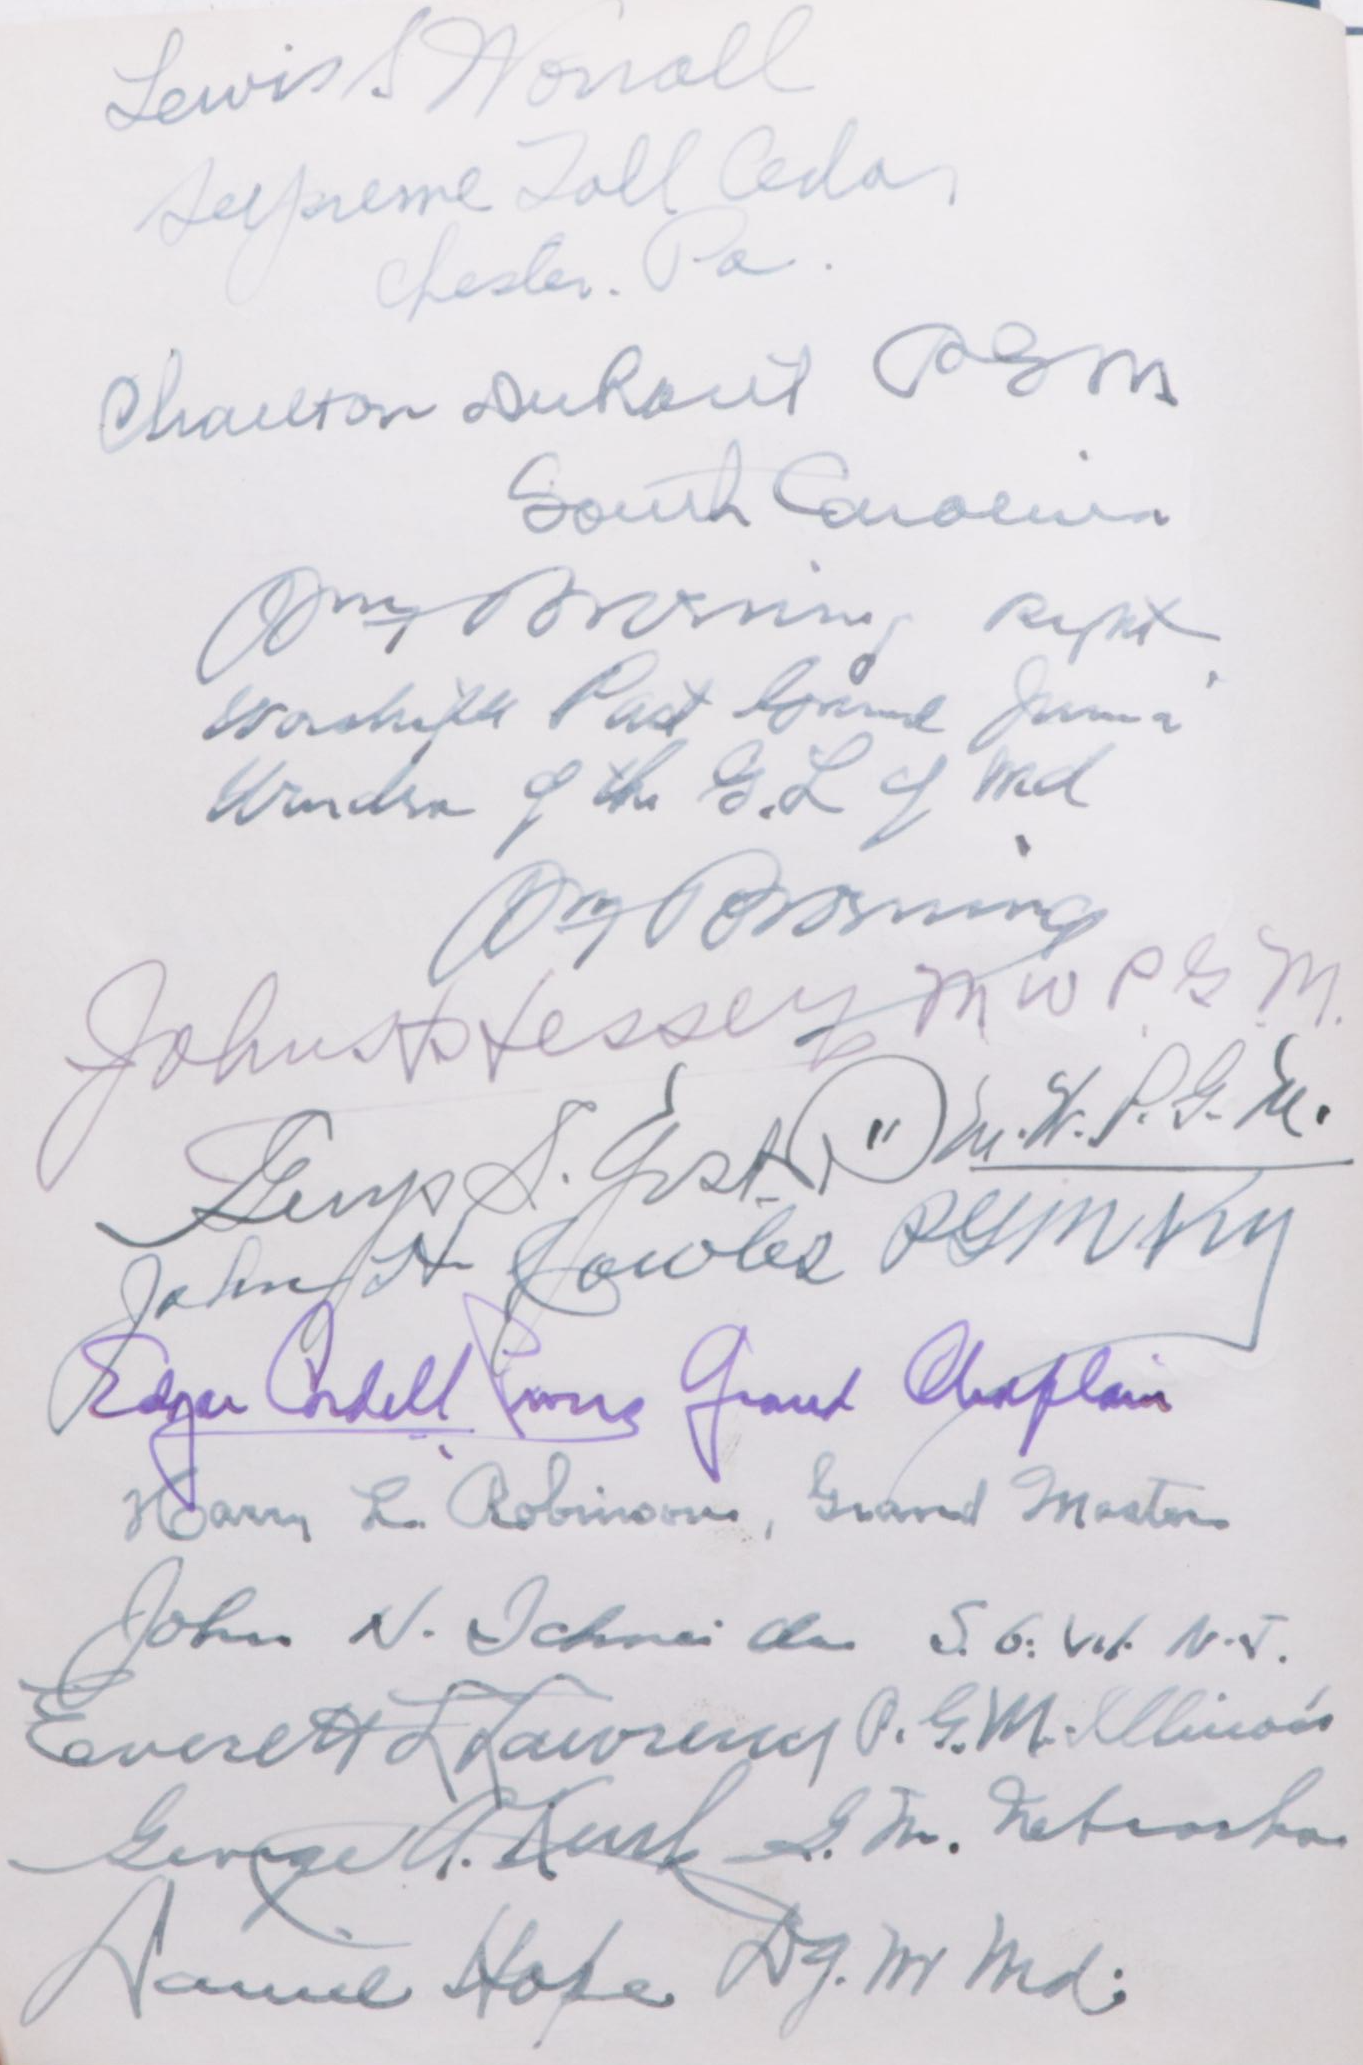 Lewis S Worrall
Supreme Tall Cedar
Chester. Pa.
Charlton DuRant PGM
South Carolina
Wm Browning Right
Worshipful Past Grand Junior
Warden of the G.L of Md
Wm Browning
John H Hessey M W P G M.
George S. Gist. M.W.P.G.M.
John H Cowles PGM Ky
Edgar Cordell Powers Grand Chaplain
Harry L. Robinson, Grand Master
John N. Schneider S. G. W. N.J.
Everett L Lawrence P. G.M. Illinois
George A. Kurk G.M. Nebraska
Daniel Hope D G.M Md.